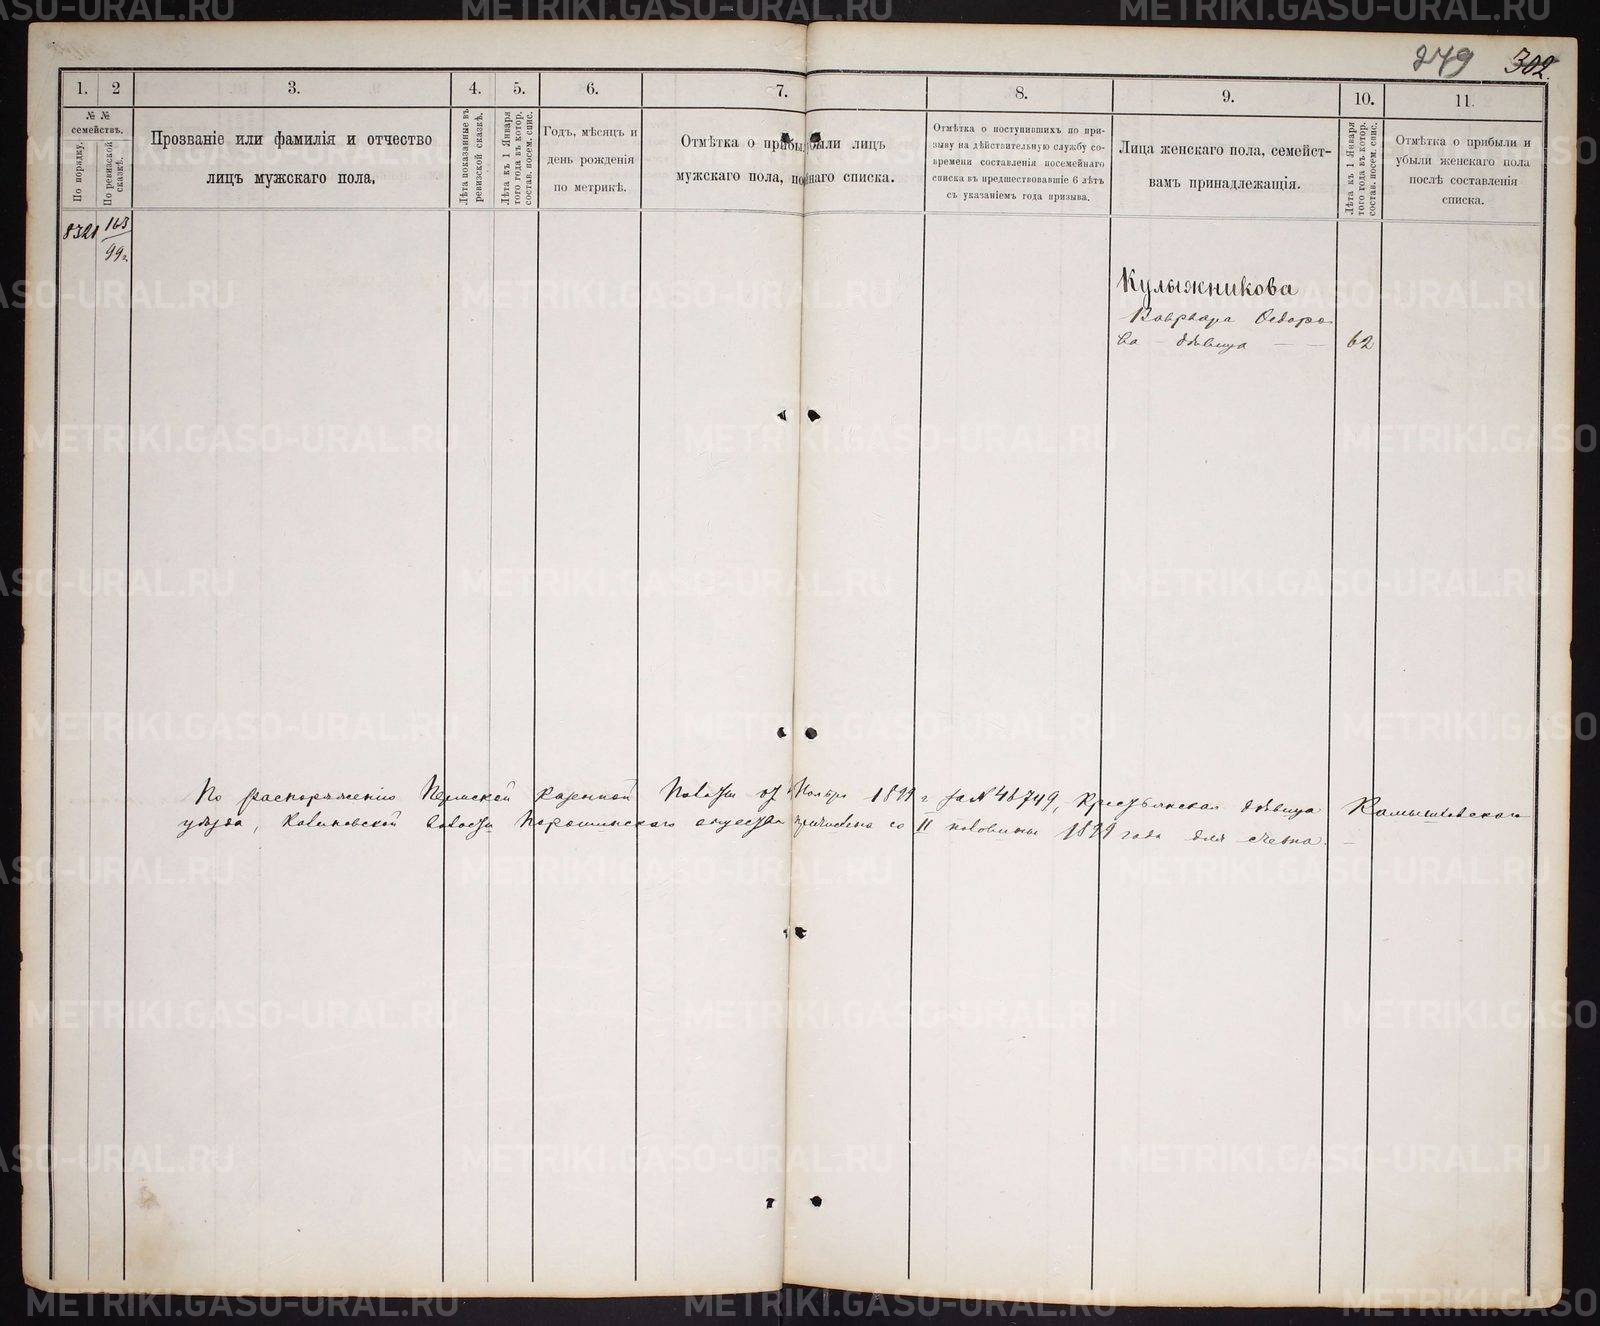 279 302.
1. 2 3. 4. 5. 6. 7. 8. 9. 10. 11.
№ №
семействъ.
По порядку.
По ревизской
сказкѣ.
Прозваніе или фамилія и отчество
лицъ мужскаго пола.
Лѣта показанные въ
ревизской сказкѣ.
Лѣта къ 1 Января
того года въ котор.
состав. посем. спис.
Годъ, мѣсяцъ и
день рожденія
по метрикѣ.
Отмѣтка о прибы были лицъ
мужскаго пола, по наго списка.
Отмѣтка о поступившихъ по при-
зыву на дѣйствительную службу со-
времени составленія посемейнаго
списка въ предшествовавшіе 6 лѣтъ
съ указаніемъ года призыва.
Лица женскаго пола, семейст-
вамъ принадлежащія.
Лѣта къ 1 Января
того года въ котор.
состав. посем. спис.
Отмѣтка о прибыли и
убыли женскаго пола
послѣ составленія
списка.
8321 163
99г.
Кулыжникова
Варвара Федоро
ва – дѣвица – – 62
По распоряженію Пермской Казенной Палаты от Ноября 1899 г за № 48749, Крестьянская дѣвица Камышловскаго
уѣзда, волости Порошинскаго общества причислена со II половины 1899 года для счета. –
METRIKI.GASO-URAL.RU